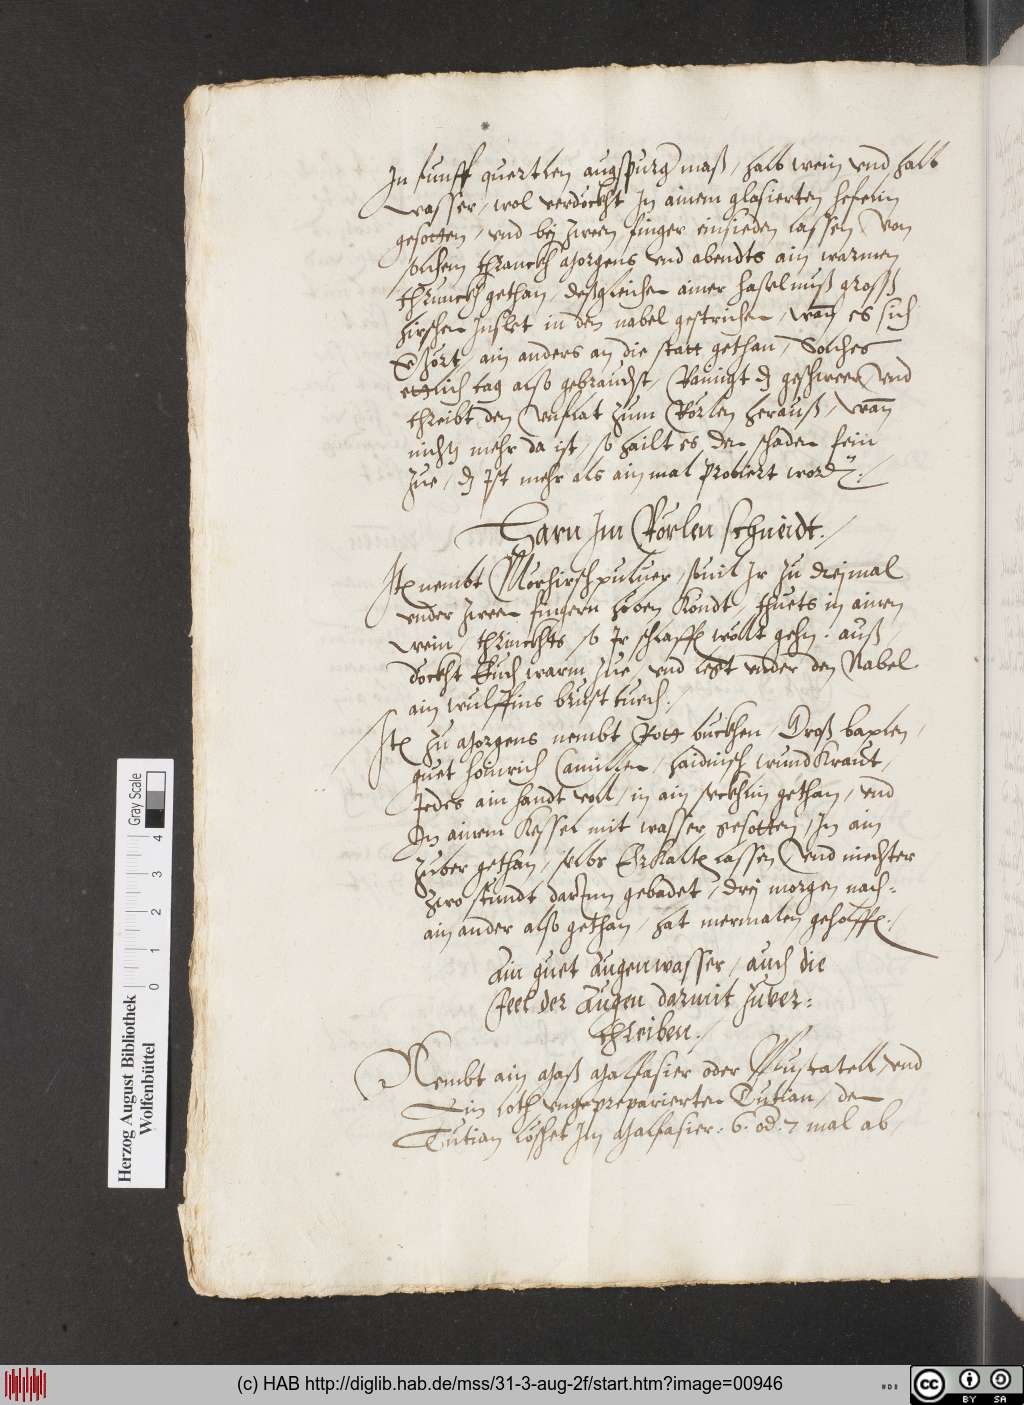 In funff quertlen augspurg maß, halb wein vnd halb
wasser, wol verdöckht In ainem glasierten hefelin
gesotten, vnd bej zween finger einsieden lassen, Von
solchem thranckh Morgens vnd abendts ain warmen
thrunckh gethan, deßgleichen ainer haselnuß groß
hirschen Inslet in den nabel gestrichen, wan es sich
verzört, ain anders an die statt gethan, Solches
ettlich tag also gebraucht, Rainigt dz geschweer, vnd
threibt den Vnflat zum Rörlen herauß, wan
nichtz mehr da ist, so hailt es den schaden fein
zue, dz Ist mehr als ain mal probiert worden ./
Harn Im Rörlen schneidt ./
Item nembt Morhirsch puluer, souil Ir zu dreimal
vnder zween fingern heben kondt, thuets in ainen
wein, thrinckhts so Ir schlaffen wölt gehn: auß,
döckht Euch warm zue, vnd legt vnder den Nabel
ain wulffins brust tuech ./
Item zu Morgens nembt Rott buckhen, Groß baplen,
guet hainrich Camillen, haidnisch wundkraut,
Jedes ain handt vol, in ain seckhlin gethan, vnd
In ainem Kessel mit wasser gesotten, In ain
zuber gethan, selbs Erkalten lassen, vnd niechter
zwo stundt darInn gebadet, drej morgen nach=
ain ander also gethan, hat mermalen geholffen ./
Ain guet Augenwasser, auch die
Feel der Augen darmit zuver=
threiben ./
Nembt ain Maß Malfasier oder Muscatell, vnd
Ein loth ungepreparierten Tutian, den
Tutian löschet Im Malfasier: 6. od: 7 mal ab,
Herzog August Bibliothek
Wolfenbüttel
Gray Scale
0 1 2 3 4
(c) HAB http://diglib.hab.de/mss/31-3-aug-2f/start.htm?image=00946
cc BY SA